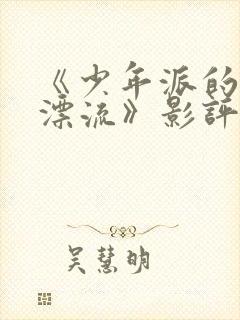 《少年派的
漂流》影評
吳慧明